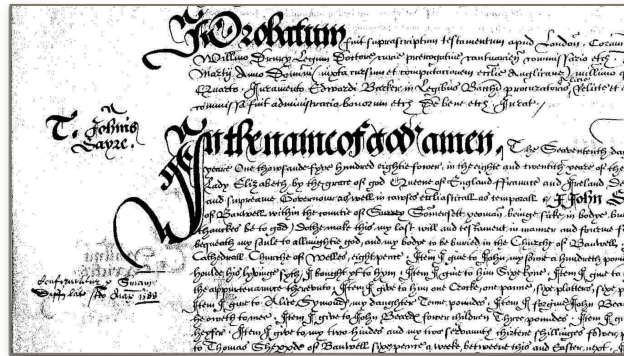 Probatum fuit suprascriptum testamentum apud London. Coram
Willmo Drury Legum Doctore, curie prerogative Cantuarien commissario etc.
Martij, Anno Domini iuxta cursum et computationem ecclie Anglicane, millimo q
Quarto, Juramento Edwardi Barker, in Legibus
commissa fuit administratio bonorum etc. De bene etc. Jurat.
T. Johnis
Sayre.
In the name of god amen, The Seavententh da
yeare One thowsande fyve hundred eightie fower, in the eighte and twentith yeare of the
Lady Elizabeth, by the grace of god Queene of England ffraunce and Ireland, De
and supreame Governour as well in causes ecclesiasticall as temporall. I John S
of Banwell within the countie of Somersett yeoman, beinge sicke in bodye, bu
thanckes be to god, Dothe make this my last will and testament in manner and fourme f
bequeath my soule to allmightie god, and my body to be buried in the Churche of Banwell,
Cathedrall Churche of Welles, eightpence, Item I give to John, my sonne a hundreth pow
I bought yt to hym, Item I give to him Sixe kyne, Item I give to
the appurtenance therevnto, Item I give to him one Crocke, one panne, sixe platters, sixe p
Item I give to Alice Symons, my daughter Tenne poundes, Item I forgive John Bea
he oweth to mee, Item I give to John Beades fower children Three poundes, Item I gi
heyfer, Item I give to my two hindes and my two servauntes thirtene shillinges fower p
to Thomas of Banwell sixe pence a weeke, betweene this and Easter next, I